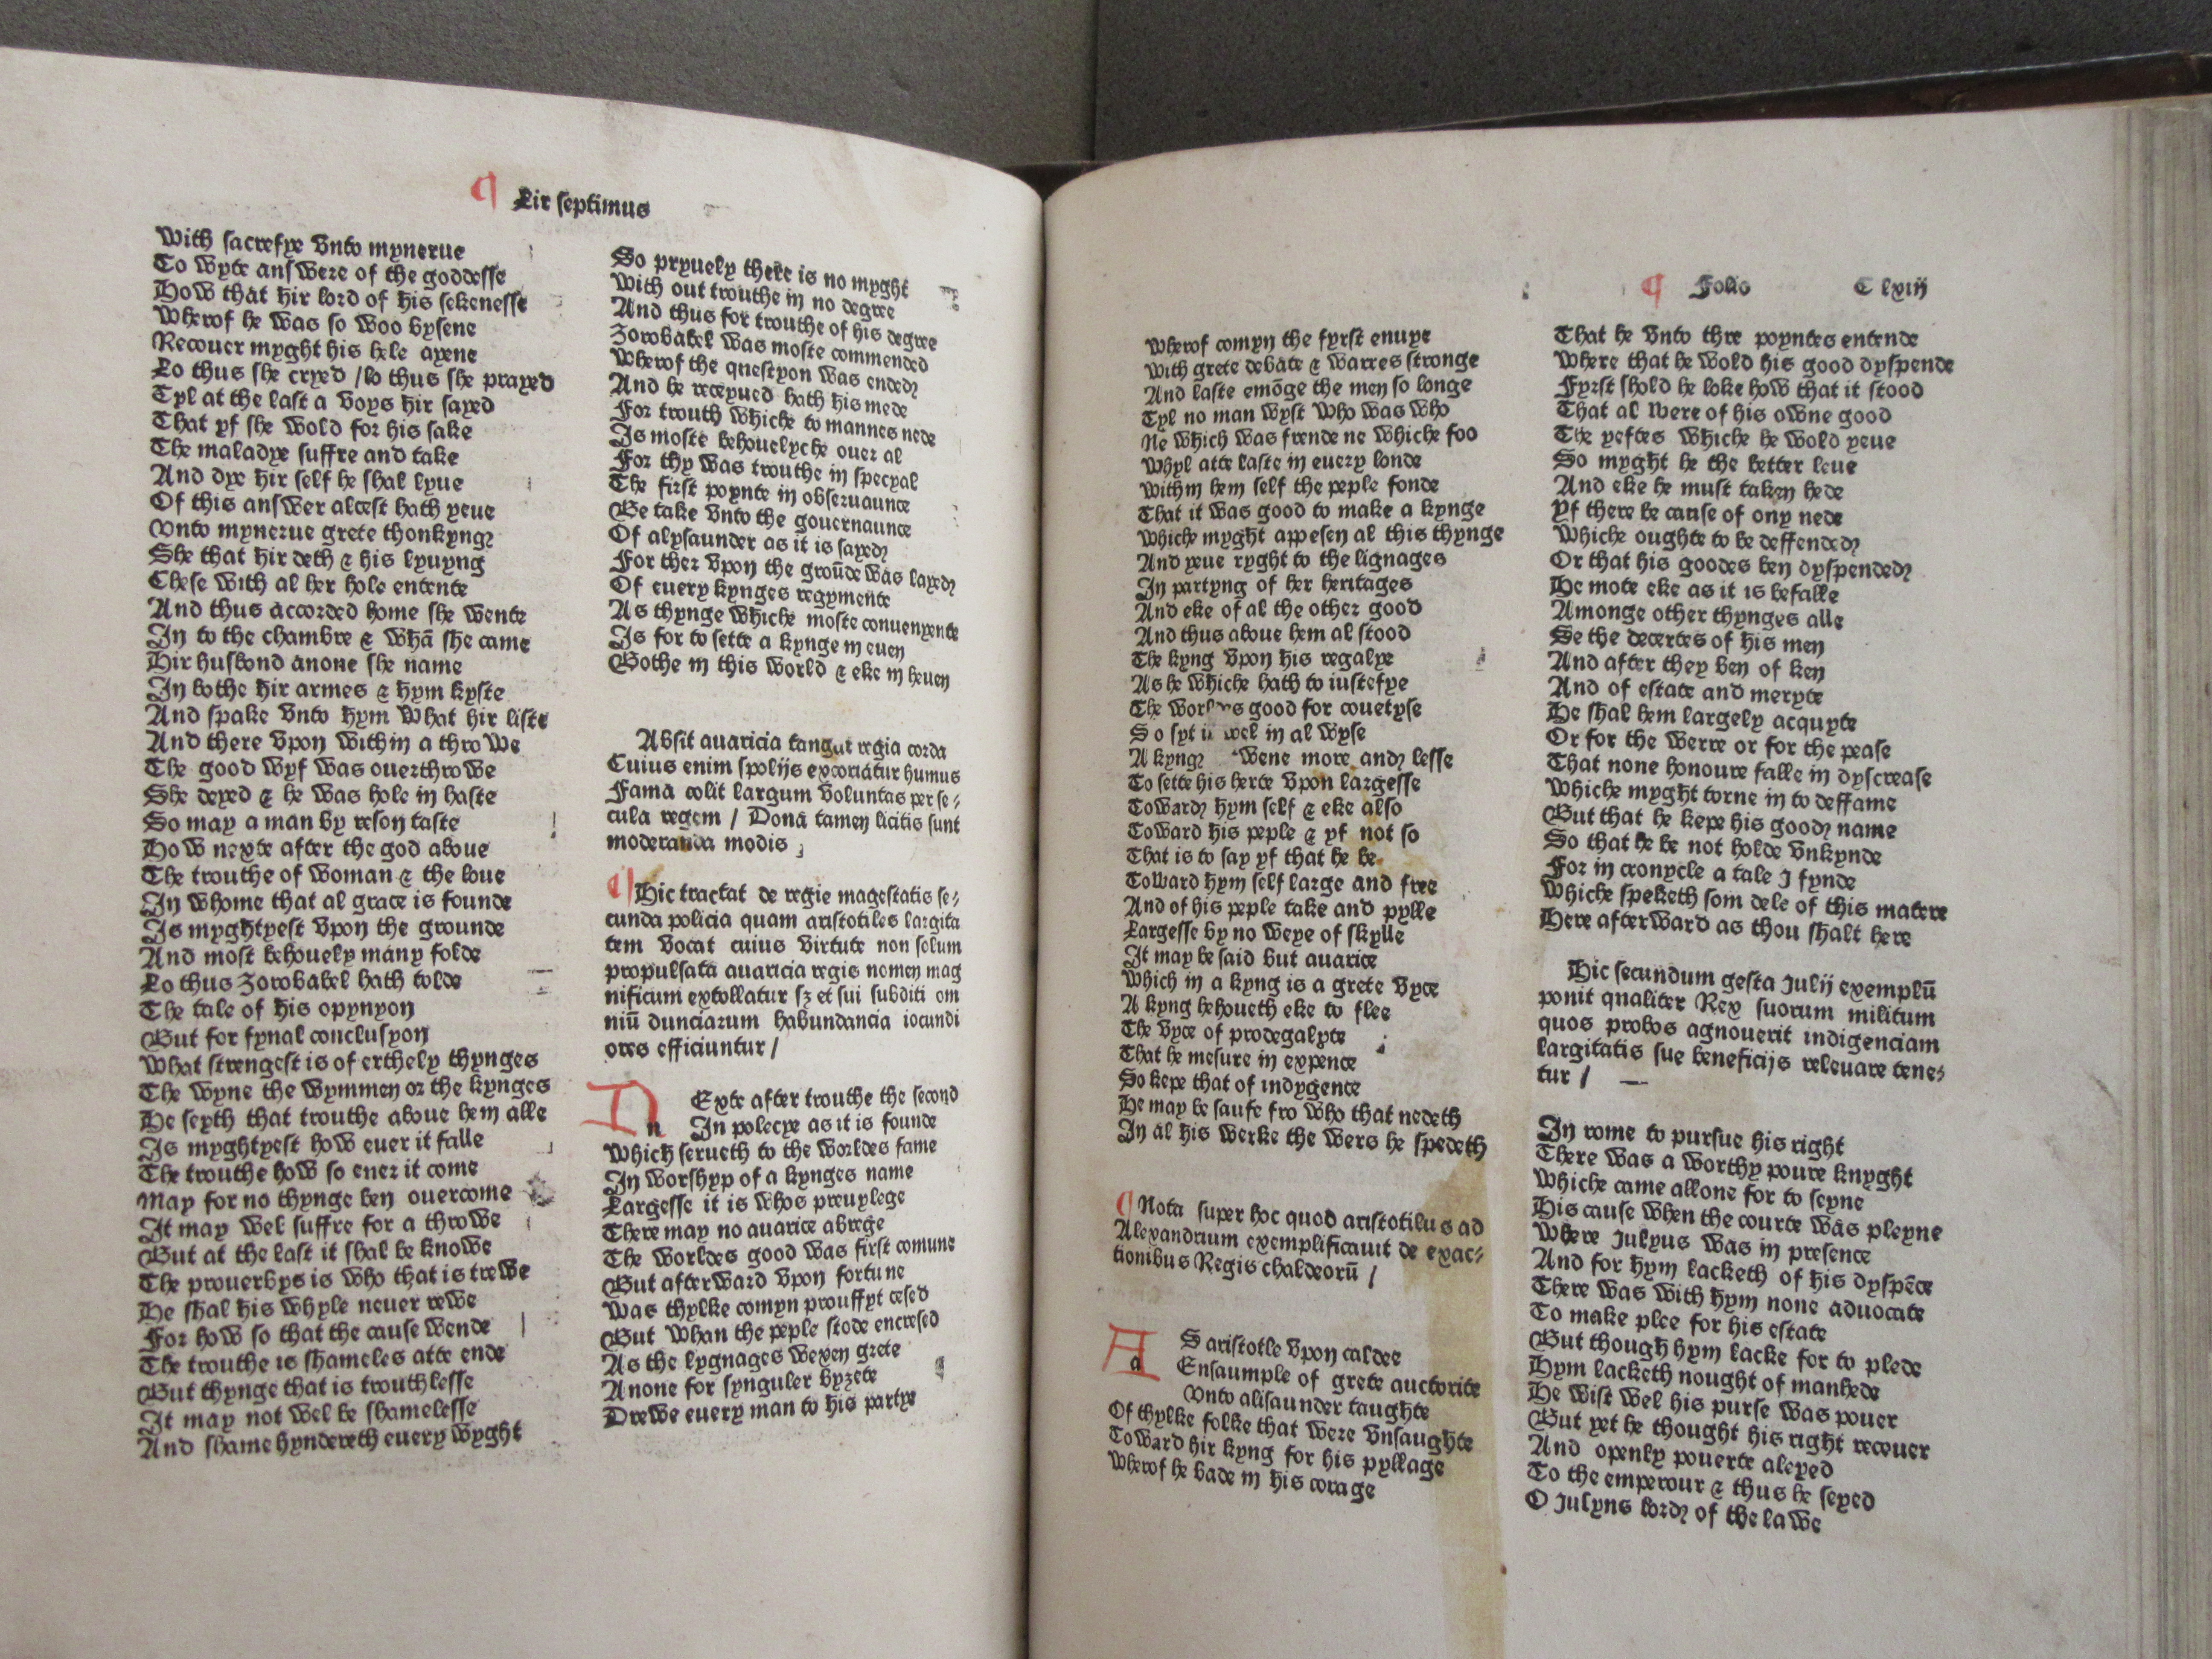 ¶ Lir septimus
With sacrefye vnto mynerue
To wyte answere of the goddesse
How that hir lord of his sekenesse
Wherof he was so woo bysene
Recouer myght his hele ayene
Lo thus she cryed / lo thus she prayed
Tyl at the last a voys hir sayed
That yf she wold for his sake
The maladye suffre and take
And dye hir self he shal lyue
Of this answer alcest hath yeue
Vnto mynerue grete thonkyng
She that hir deth & his lyuyng
Chese with al her hole entente
And thus accorded home she wente
In to the chambre & whā she came
Hir husbond anone she name
In bothe hir armes & hym kyste
And spake vnto hym what hir liste
And there vpon within a throwe
The good wyf was ouerthrowe
She deyed & he was hole in haste
So may a man by reson taste
How nexte after the god aboue
The trouthe of woman & the loue
In whome that al grace is founde
Is myghtyest vpon the grounde
And most behouely many folde
Lo thus Zorobabel hath tolde
The tale of his opynyon
But for fynal conclusyon
What strengest is of erthely thynges
The wyne the wymmen or the kynges
He seyth that trouthe aboue hem alle
Is myghtyest how euer it falle
The trouthe how so euer it come
May for no thynge ben ouercome
It may wel suffre for a throwe
But at the last it shal be knowe
The prouerbys is who that is trewe
He shal his whyle neuer rewe
For how so that the cause wende
The trouthe is shameles atte ende
But thynge that is trouthlesse
It may not wel be shamelesse
And shame hyndereth euery wyght
So pryuely there is no myght
With out trouthe in no degree
And thus for trouthe of his degree
Zorobabel was moste commended
Wherof the questyon was ended
And he receyued hath his mede
For trouth whiche to mannes nede
Is moste behouelyche ouer al
For thy was trouthe in specyal
The first poynte in obseruaunce
Be take vnto the gouernaunce
Of alysaunder as it is sayed
For ther vpon the groūde was layed
Of euery kynges regymente
As thynge whiche moste conuenyente
Is for to sette a kynge in euen
Bothe in this world & eke in heuen
Absit auaricia tangat regia corda
Cuius enim spolijs excoriatur humus
Fama colit largum voluntas per se-
cula regem / Dona tamen licitis sunt
moderanda modis
¶ Hic tractat de regie magestatis se-
cunda policia quam aristotiles largita
tem vocat cuius virtute non solum
propulsata auaricia regis nomen mag
nificum extollatur sz et sui subditi om
niū dunciarum habundancia iocundi
ores efficiuntur /
N Exte after trouthe the second
n In polecye as it is founde
Which serueth to the worldes fame
In worshyp of a kynges name
Largesse it is whos preuylege
There may no auarice abrege
The worldes good was first comune
But afterward vpon fortune
Was thylke comyn prouffyt cesed
But whan the peple stode encresed
As the lygnages wexen grete
Anone for synguler byzete
Drewe euery man to his partye
¶ Folio C lxiij
Wherof comyn the fyrst enuye
With grete debate & warres stronge
And laste emōge the men so longe
Tyl no man wyst who was who
Ne which was frende ne whiche foo
Whyl atte laste in euery londe
Within hem self the peple fonde
That it was good to make a kynge
Whiche myght appesen al this thynge
And yeue ryght to the lignages
In partyng of her heritages
And eke of al the other good
And thus aboue hem al stood
The kyng vpon his regalye
As he whiche hath to iustefye
The good for couetyse
So syt wel in al wyse
A kyng wene more and lesse
To sette his herte vpon largesse
Toward hym self & eke also
Toward his peple & yf not so
That is to say yf that he be
Toward hym self large and free
And of his peple take and pylle
Largesse by no weye of skylle
It may be said but auarice
Which in a kyng is a grete vyce
A kyng behoueth eke to flee
The vyce of prodegalyte
That he mesure in expence
So kepe that of indygence
He may be saufe fro who that nedeth
In al his werke the wers he spedeth
¶ Nota super hoc quod aristotilus ad
Alexandrum exemplificauit de exac-
tionibus Regis chaldeorū /
A S aristotle vpon caldee
a Ensaumple of grete auctorite
Vnto alisaunder taughte
Of thylke folke that were vnsaughte
Toward hir kyng for his pyllage
Wherof he bade in his corage
That he vnto thre poyntes entende
Where that he wold his good dyspende
Fyrst shold he loke how that it stood
That al were of his owne good
The yeftes whiche he wold yeue
So myght he the better leue
And eke he must taken hede
Yf there be cause of ony nede
Whiche oughte to be deffended
Or that his goodes ben dyspended
He mote eke as it is befalle
Amonge other thynges alle
Se the decertes of his men
And after they ben of ken
And of estate and meryte
He shal hem largely acquyte
Or for the werre or for the pease
That none honoure falle in dyscrease
Whiche myght torne in to deffame
But that he kepe his good name
So that he be not holde vnkynde
For in cronycle a tale I fynde
Whiche speketh som dele of this matere
Here afterward as thou shalt here
Hic secundum gesta Julij exemplū
ponit qualiter Rex suorum militum
quos probos agnouerit indigenciam
largitatis sue beneficijs releuare tene-
tur /
In rome to pursue his right
There was a worthy poure knyght
Whiche came allone for to seyne
His cause when the courte was pleyne
Where Julyus was in presence
And for hym lacketh of his dyspēce
There was with hym none aduocate
To make plee for his estate
But though hym lacke for to plede
Hym lacketh nought of manhede
He wist wel his purse was pouer
But yet he thought his right recouer
And openly pouerte aleyed
To the emperour & thus he seyed
O Julyns lord of the lawe